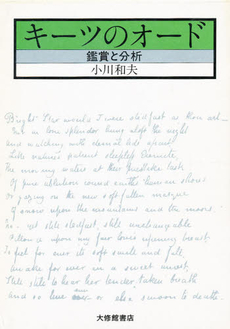 キーツのオード
鑑賞と分析
小川和夫
Bright Star would I were stedfast as thou art—
Not in lone splendor hung aloft the night
And watching with eternal lids apart
Like natures patient sleepless Eremite,
The morning waters at their priestlike task
Of pure ablution round earth's human shores
Or gazing on the new soft-fallen masque
Of snow upon the mountains and the moors
No— yet still stedfast, still unchangeable
Pillow'd upon my fair love's ripening breast
To feel for ever its soft swell and fall
Awake for ever in a sweet unrest,
Still still to hear her tender taken breath
And so live ever— or else swoon to death.
大修館書店